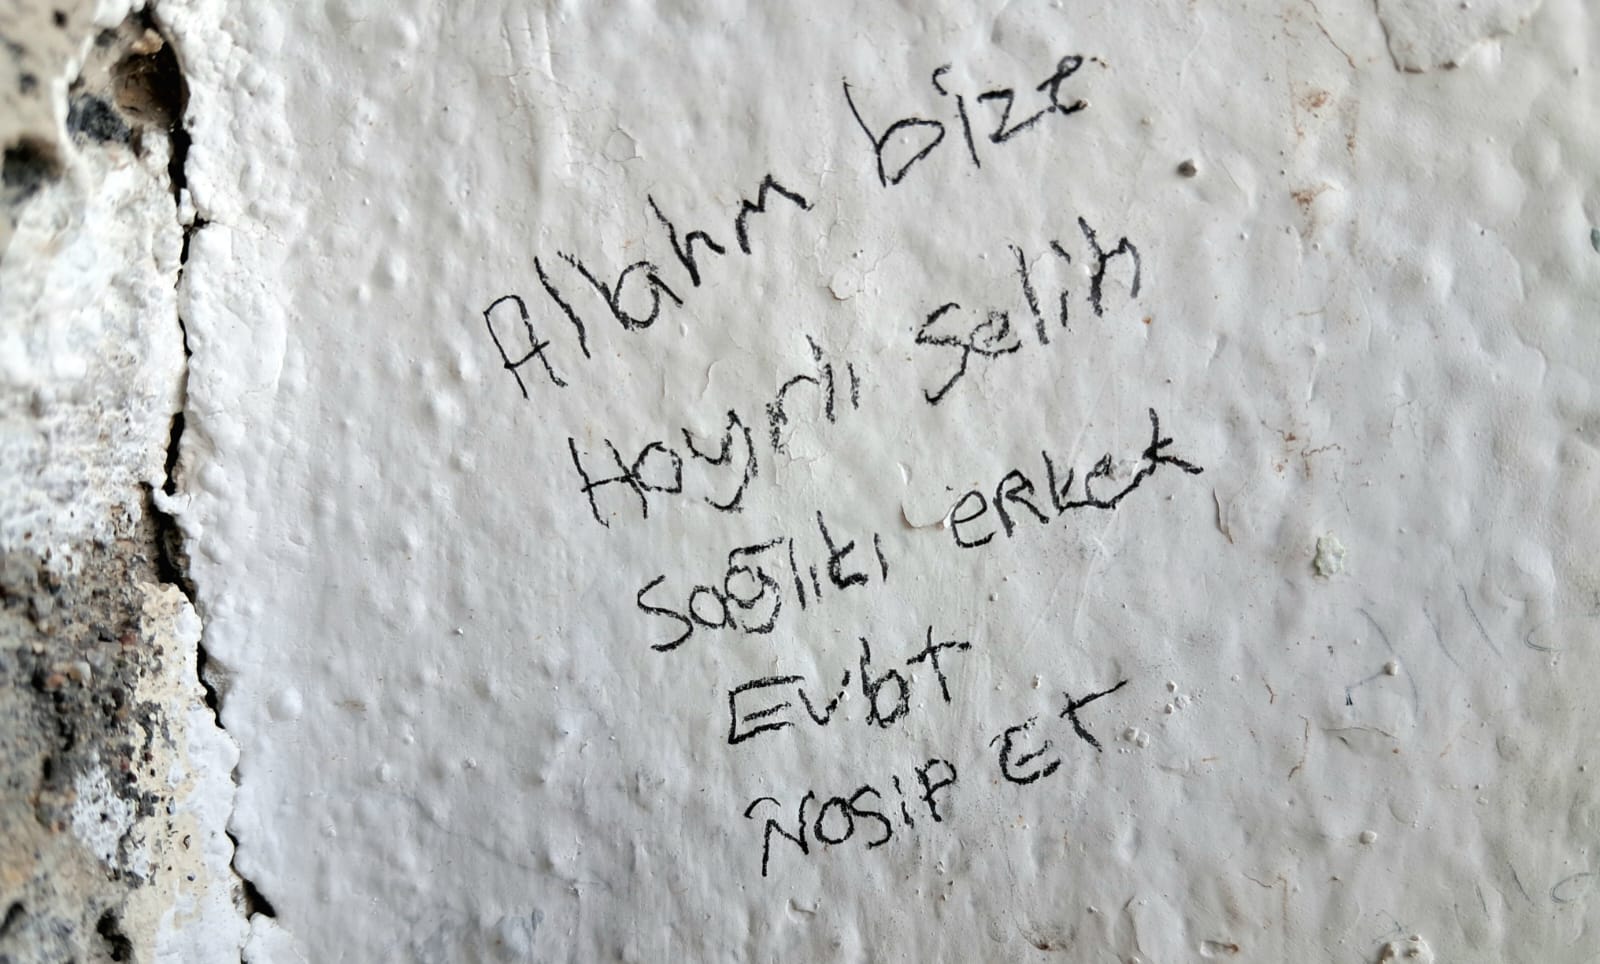 Allahm bize
Hayrlı Salih
Sağlıklı erkek
Evlat
Nasip Et